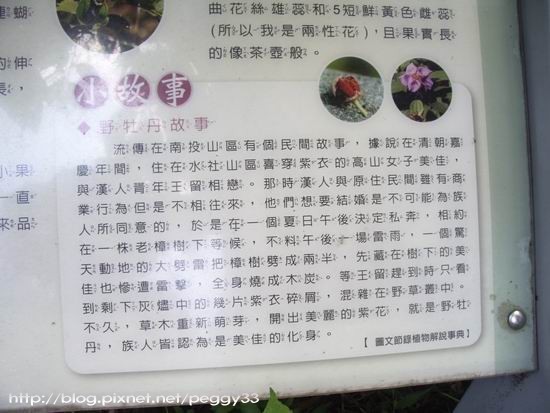 曲花絲雄蕊和5短鮮黃色雌蕊
(所以我是兩性花)，且果實長
的像茶壺般。
的伸
長，
小果
一直
來品
小故事
◆野牡丹故事
流傳在南投山區有個民間故事，據說在清朝嘉
慶年間，住在水社山區喜穿紫衣的高山女子美佳，
與漢人青年王留相戀。那時漢人與原住民雖有商
業行為但是不相往來，他們想要結婚是不可能為族
人所同意的，於是在一個夏日午後決定私奔，相約
在一株老樟樹下等候，不料午後一場雷雨，一個驚
天動地的大劈雷把樟樹劈成兩半，先藏在樹下的美
佳也慘遭雷擊，全身燒成木炭。等王留趕到時只看
到剩下灰燼中的幾片紫衣碎屑，混雜在野草叢中。
不久，草木重新萌芽，開出美麗的紫花，就是野牡
丹，族人皆認為是美佳的化身。
【圖文節錄植物解說事典】
http://blog.pixnet.net/peggy33